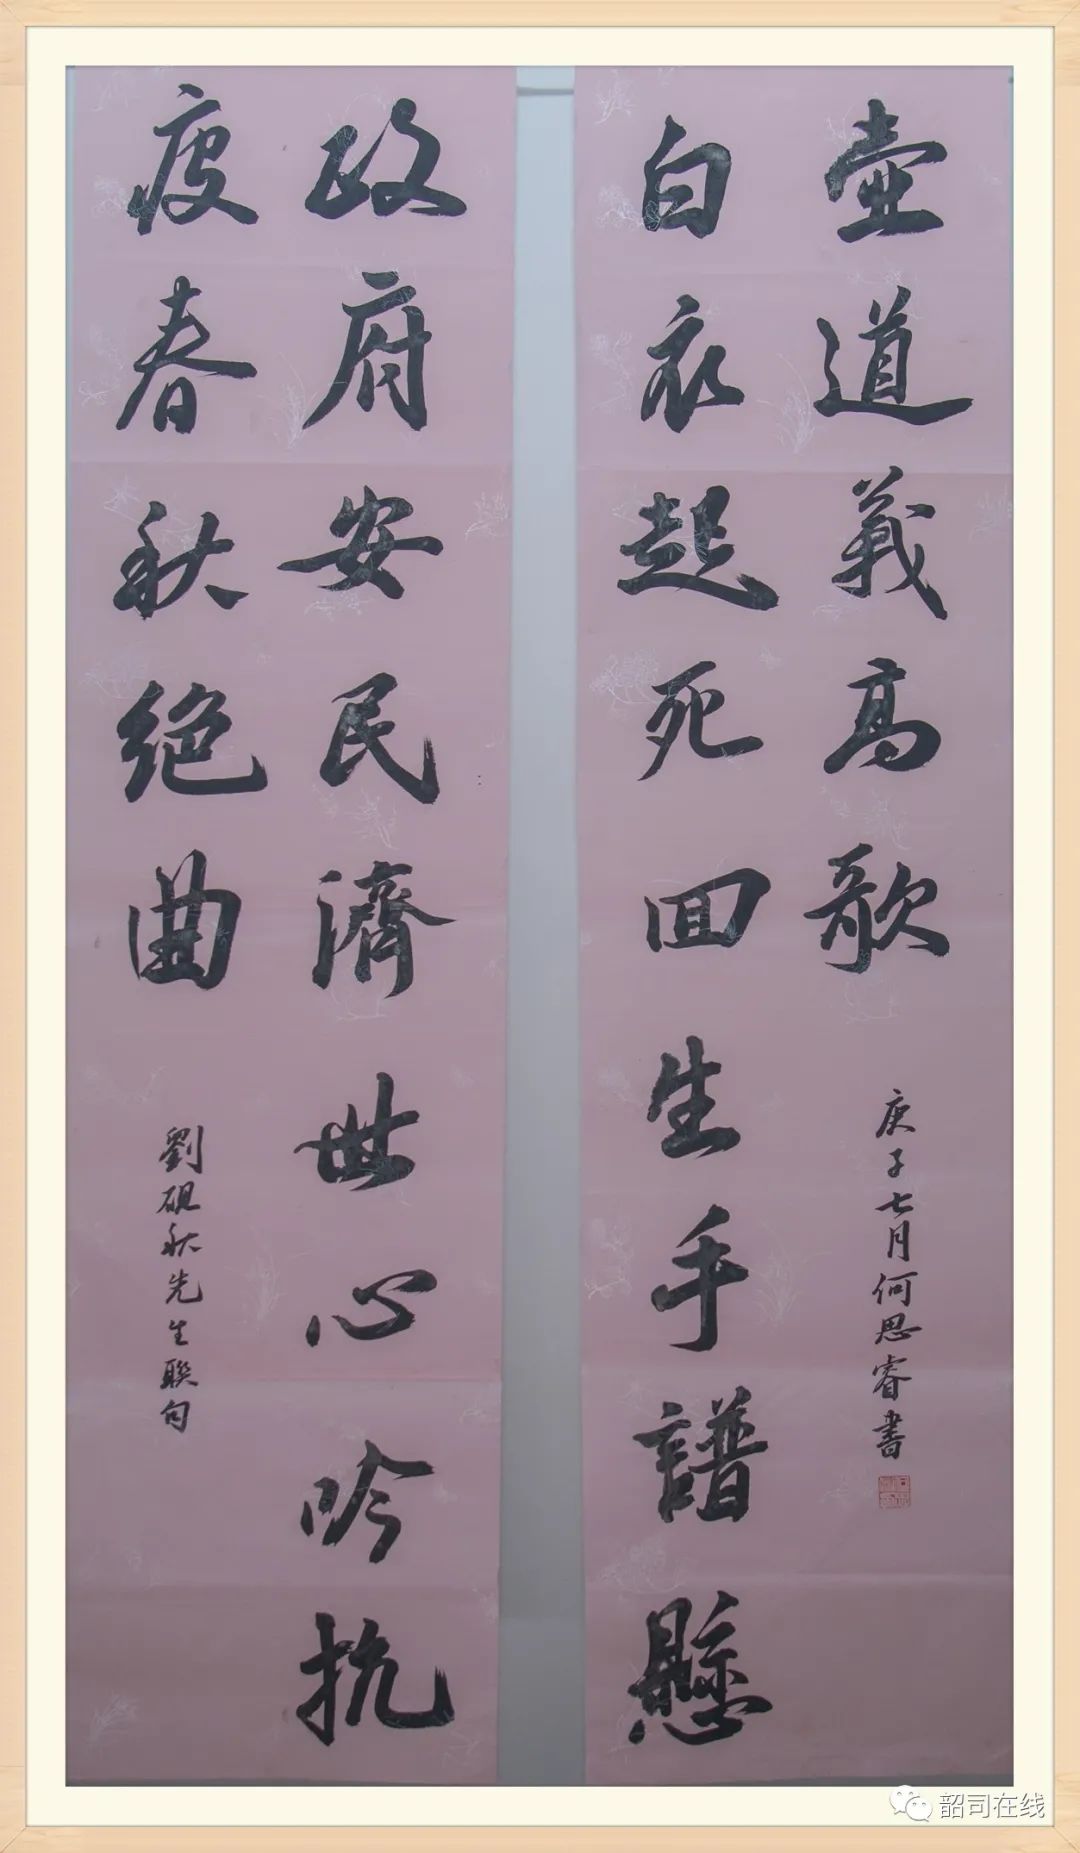 政府安民濟世心吟抗
疫春秋絶曲
劉硯秋先生聯句
白衣起死回生手譜懸
壺道義高歌
庚子七月何思睿書
韶司在线